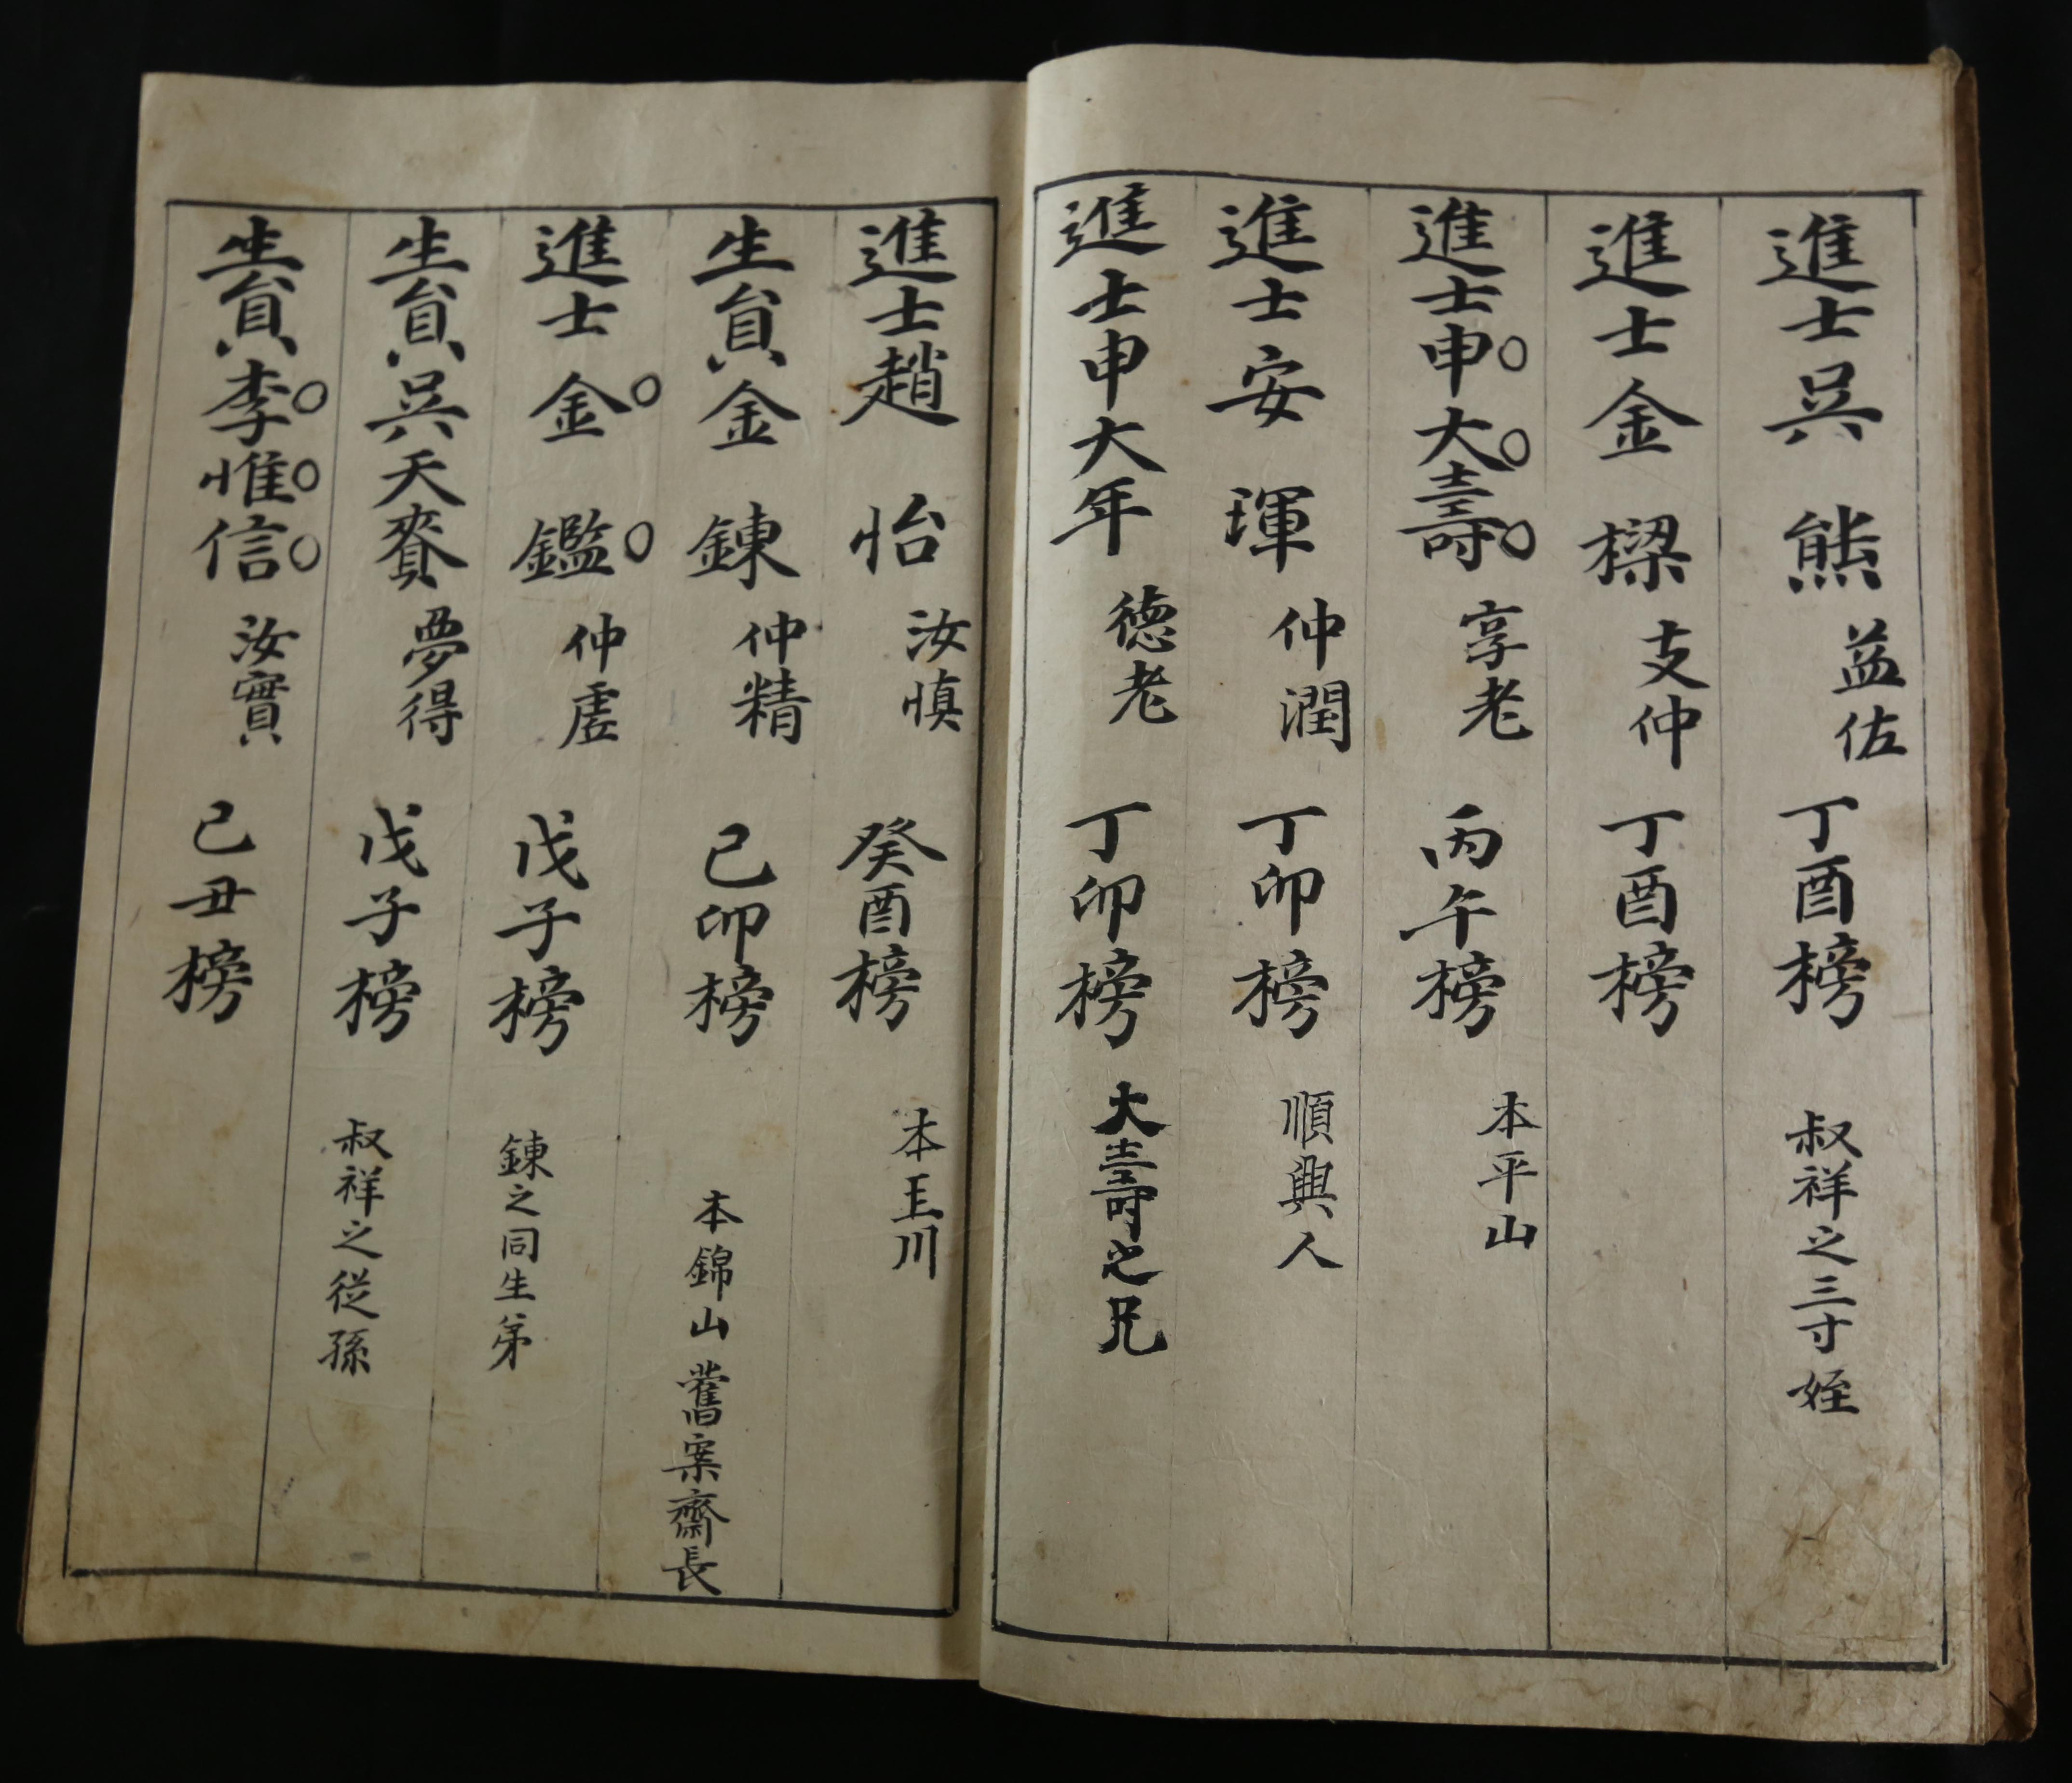 進士吳熊 益佐 丁酉榜 叔祥之三寸姪
進士金樑 支仲 丁酉榜
進士申大壽 享老 丙午榜 本平山
進士安琿 仲潤 丁卯榜 順興人
進士申大年 德老 丁卯榜 大壽之兄
進士趙怡 汝愼 癸酉榜 本玉川
生員金鍊 仲精 己卯榜 本錦山 舊案齋長
進士金鑑 仲虛 戊子榜 鍊之同生弟
生員吳天賚 夢得 戊子榜 叔祥之從孫
生員李惟信 汝實 己丑榜